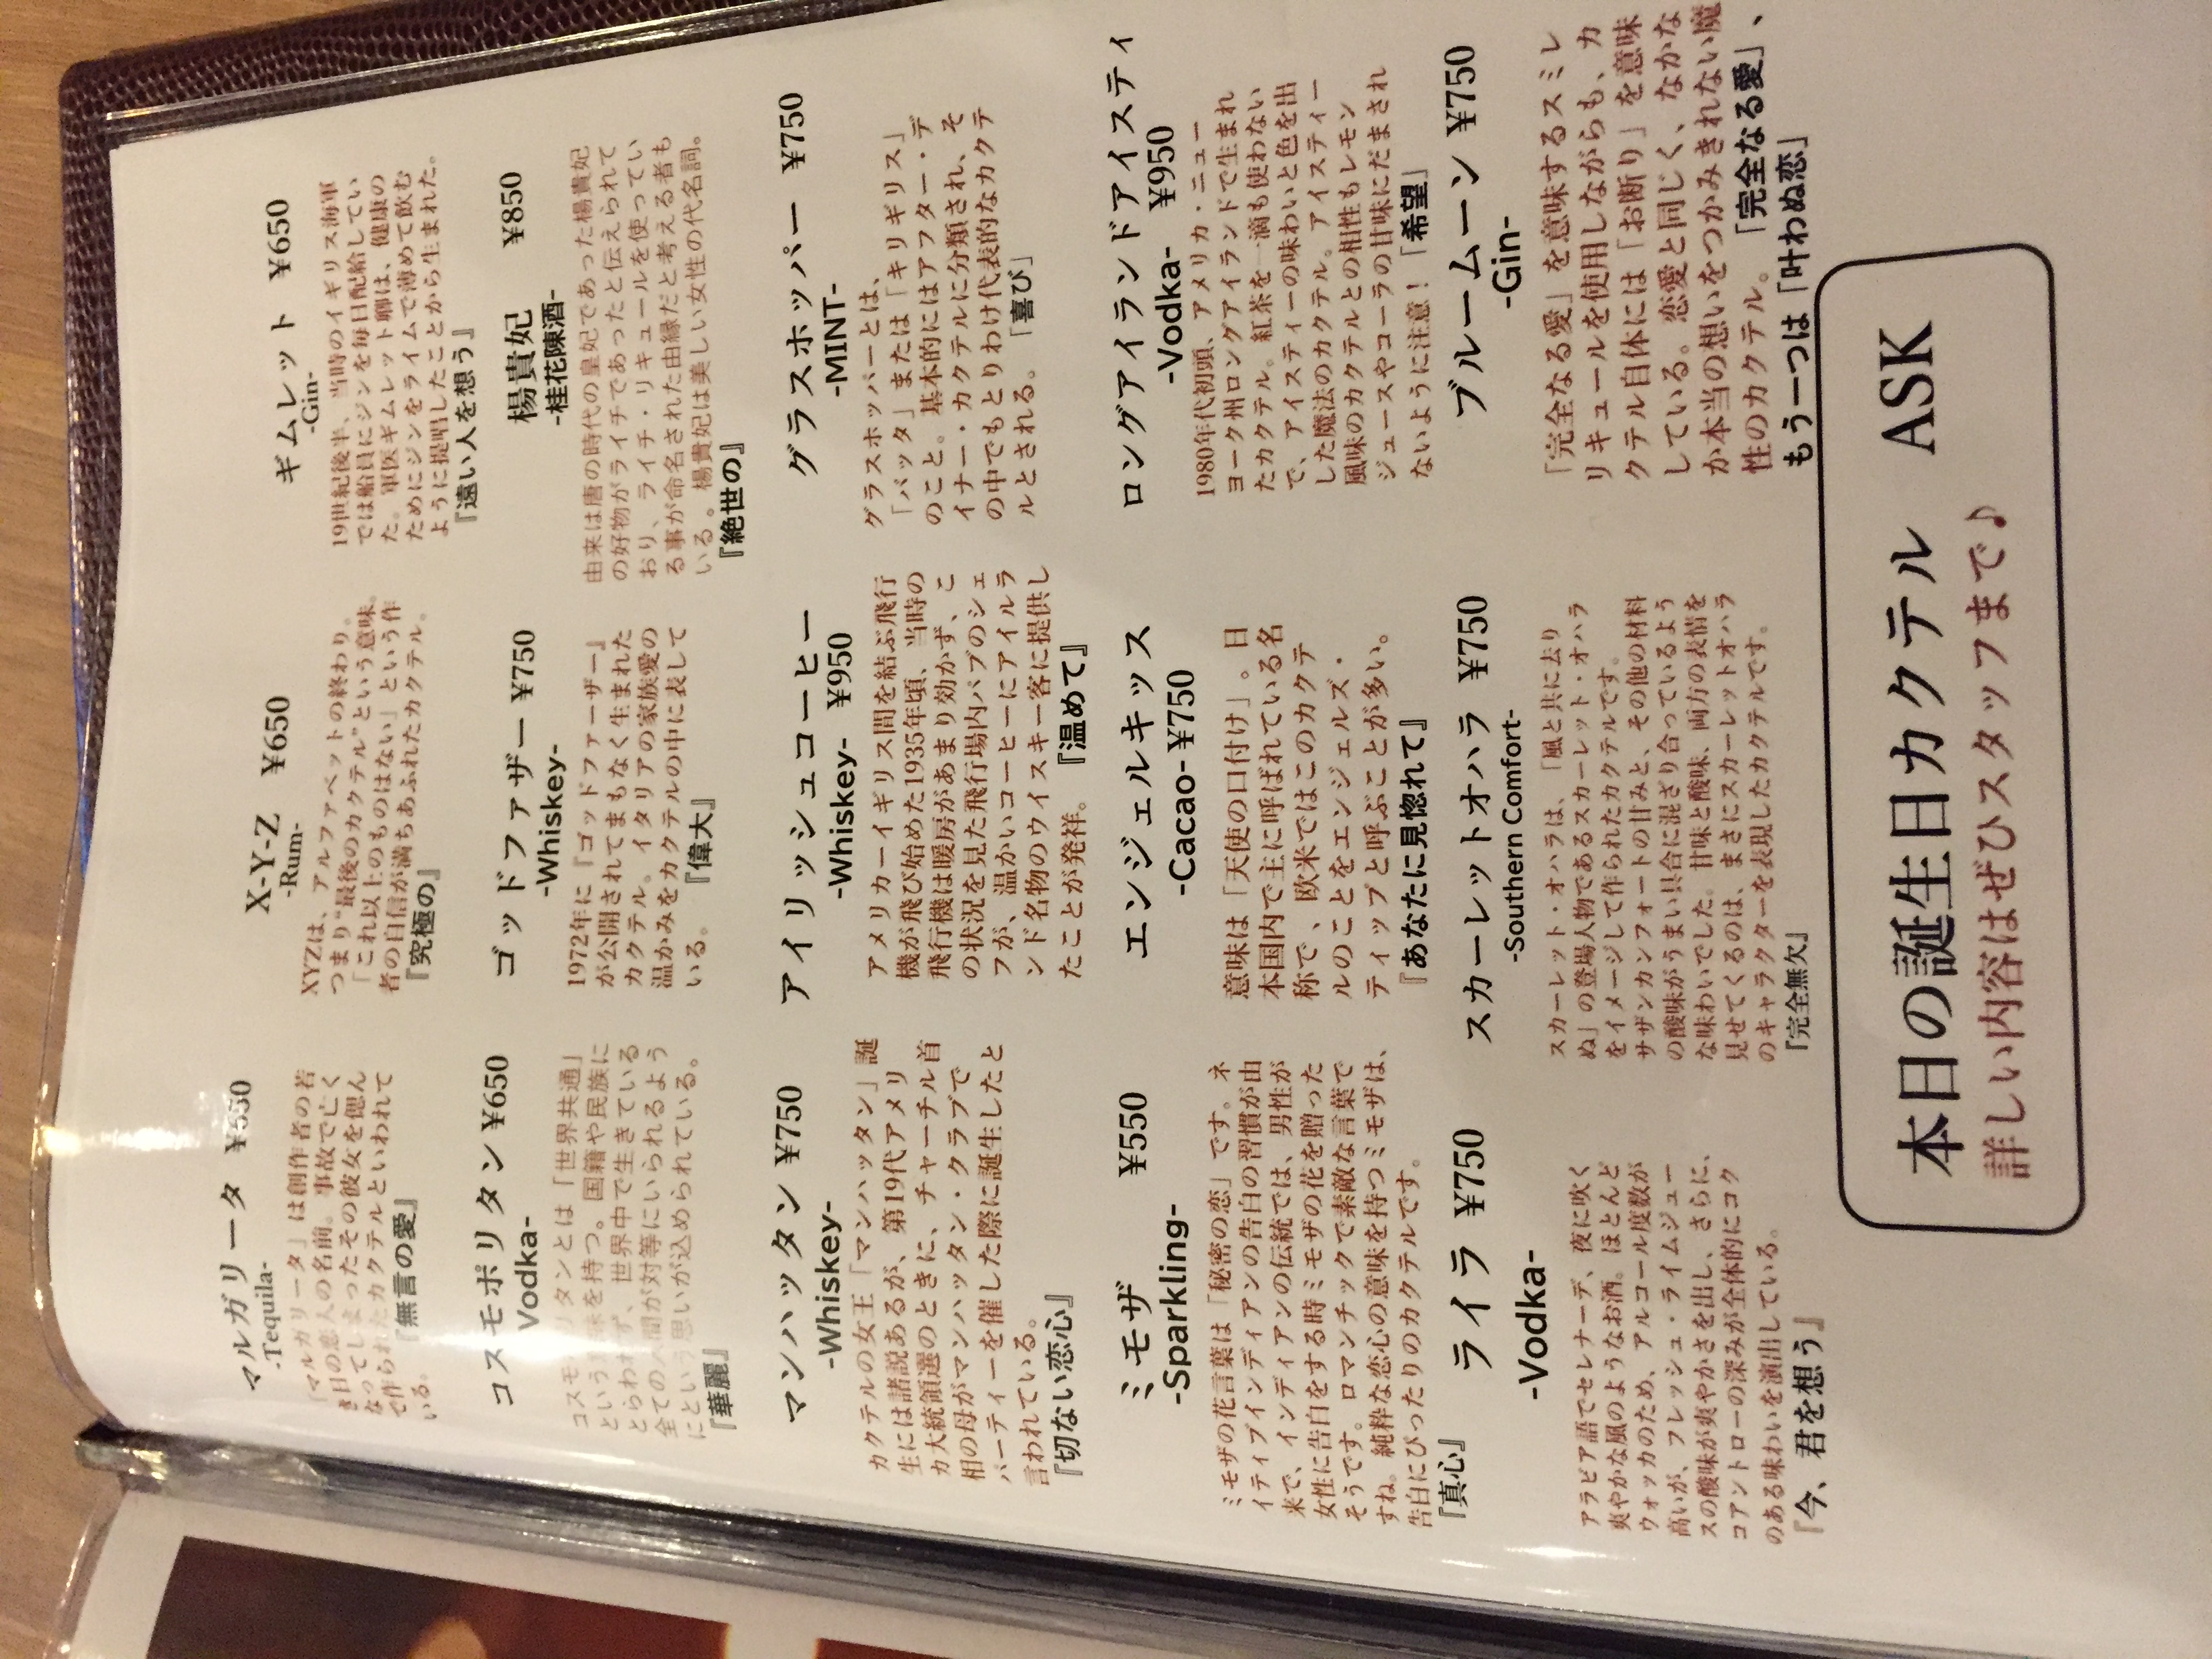 マルガリータ
-Tequila-
「マルガリータ」は創作者の若
き日の恋人の名前。事故で亡く
なってしまったその彼女を偲ん
で作られたカクテルといわれて
いる。 『無言の愛』
X-Y-Z ¥650
-Rum-
XYZは、アルファベットの終わり。
つまり“最後のカクテル”という意味。
「これ以上のものはない」という作
者の自信が満ちあふれたカクテル。
『究極の』
ギムレット ¥650
-Gin-
19世紀後半、当時のイギリス海軍
では船員にジンを毎日配給してい
た。軍医ギムレット卿は、健康の
ためにジンをライムで薄めて飲む
ように提唱したことから生まれた。
『遠い人を想う』
コスモポリタン ¥650
Vodka-
コスモ タンとは「世界共通」
という 味を持つ。国籍や民族に
とらわ ず、世界中で生きている
全ての人間が対等にいられるよう
にという思いが込められている。
『華麗』
ゴッドファザー ¥750
-Whiskey-
1972年に『ゴッドファーザー』
が公開されてまもなく生まれた
カクテル。イタリアの家族愛の
温かみをカクテルの中に表して
いる。 『偉大』
楊貴妃 ¥850
-桂花陳酒-
由来は唐の時代の皇妃であった楊貴妃
の好物がライチであったと伝えられて
おり、ライチ・リキュールを使ってい
る事が命名された由縁だと考える者も
いる。楊貴妃は美しい女性の代名詞。
『絶世の』
マンハッタン ¥750
-Whiskey-
カクテルの女王「マンハッタン」誕
生には諸説あるが、第19代アメリ
カ大統領選のときに、チャーチル首
相の母がマンハッタン・クラブで
パーティーを催した際に誕生したと
言われている。
『切ない恋心』
アイリッシュコーヒー
-Whiskey- ¥950
アメリカーイギリス間を結ぶ飛行
機が飛び始めた1935年頃、当時の
飛行機は暖房があまり効かず、こ
の状況を見た飛行場内パブのシェ
フが、温かいコーヒーにアイルラ
ンド名物のウイスキー客に提供し
たことが発祥。 『温めて』
グラスホッパー ¥750
-MINT-
グラスホッパーとは、
「バッタ」または「キリギリス」
のこと。基本的にはアフター・デ
イナー・カクテルに分類され、そ
の中でもとりわけ代表的なカクテ
ルとされる。 「喜び」
ミモザ ¥550
-Sparkling-
ミモザの花言葉は「秘密の恋」です。ネ
イティブインディアンの告白の習慣が由
来で、インディアンの伝統では、男性が
女性に告白をする時ミモザの花を贈った
そうです。ロマンチックで素敵な言葉で
すね。純粋な恋心の意味を持つミモザは、
告白にぴったりのカクテルです。
『真心』
エンジェルキッス
-Cacao- ¥750
意味は「天使の口付け」。日
本国内で主に呼ばれている名
称で、欧米ではこのカクテ
ルのことをエンジェルズ・
ティップと呼ぶことが多い。
『あなたに見惚れて』
ロングアイランドアイスティ
-Vodka- ¥950
1980年代初頭、アメリカ・ニュー
ヨーク州ロングアイランドで生まれ
たカクテル。紅茶を一滴も使わない
で、アイスティーの味わいと色を出
した魔法のカクテル。アイスティー
風味のカクテルとの相性もレモン
ジュースやコーラの甘味にだまされ
ないように注意！「希望」
ライラ ¥750
-Vodka-
アラビア語でセレナーデ、夜に吹く
爽やかな風のようなお酒。ほとんど
ウォッカのため、アルコール度数が
高いが、フレッシュ・ライムジュー
スの酸味が爽やかさを出し、さらに、
コアントローの深みが全体的にコク
のある味わいを演出している。
『今、君を想う』
スカーレットオハラ ¥750
-Southern Comfort-
スカーレット・オハラは、「風と共に去り
ぬ」の登場人物であるスカーレット・オハラ
をイメージして作られたカクテルです。
サザンカンフォートの甘みと、その他の材料
の酸味がうまい具合に混ざり合っているよう
な味わいでした。甘味と酸味、両方の表情を
見せてくるのは、まさにスカーレットオハラ
のキャラクターを表現したカクテルです。
『完全無欠』
ブルームーン ¥750
-Gin-
「完全なる愛」を意味するスミレ
リキュールを使用しながらも、カ
クテル自体には「お断り」を意味
している。恋愛と同じく、なかな
か本当の想いをつかみきれない魔
性のカクテル。 「完全なる愛」、
もう一つは「叶わぬ恋」
本日の誕生日カクテル ASK
詳しい内容はぜひスタッフまで♪